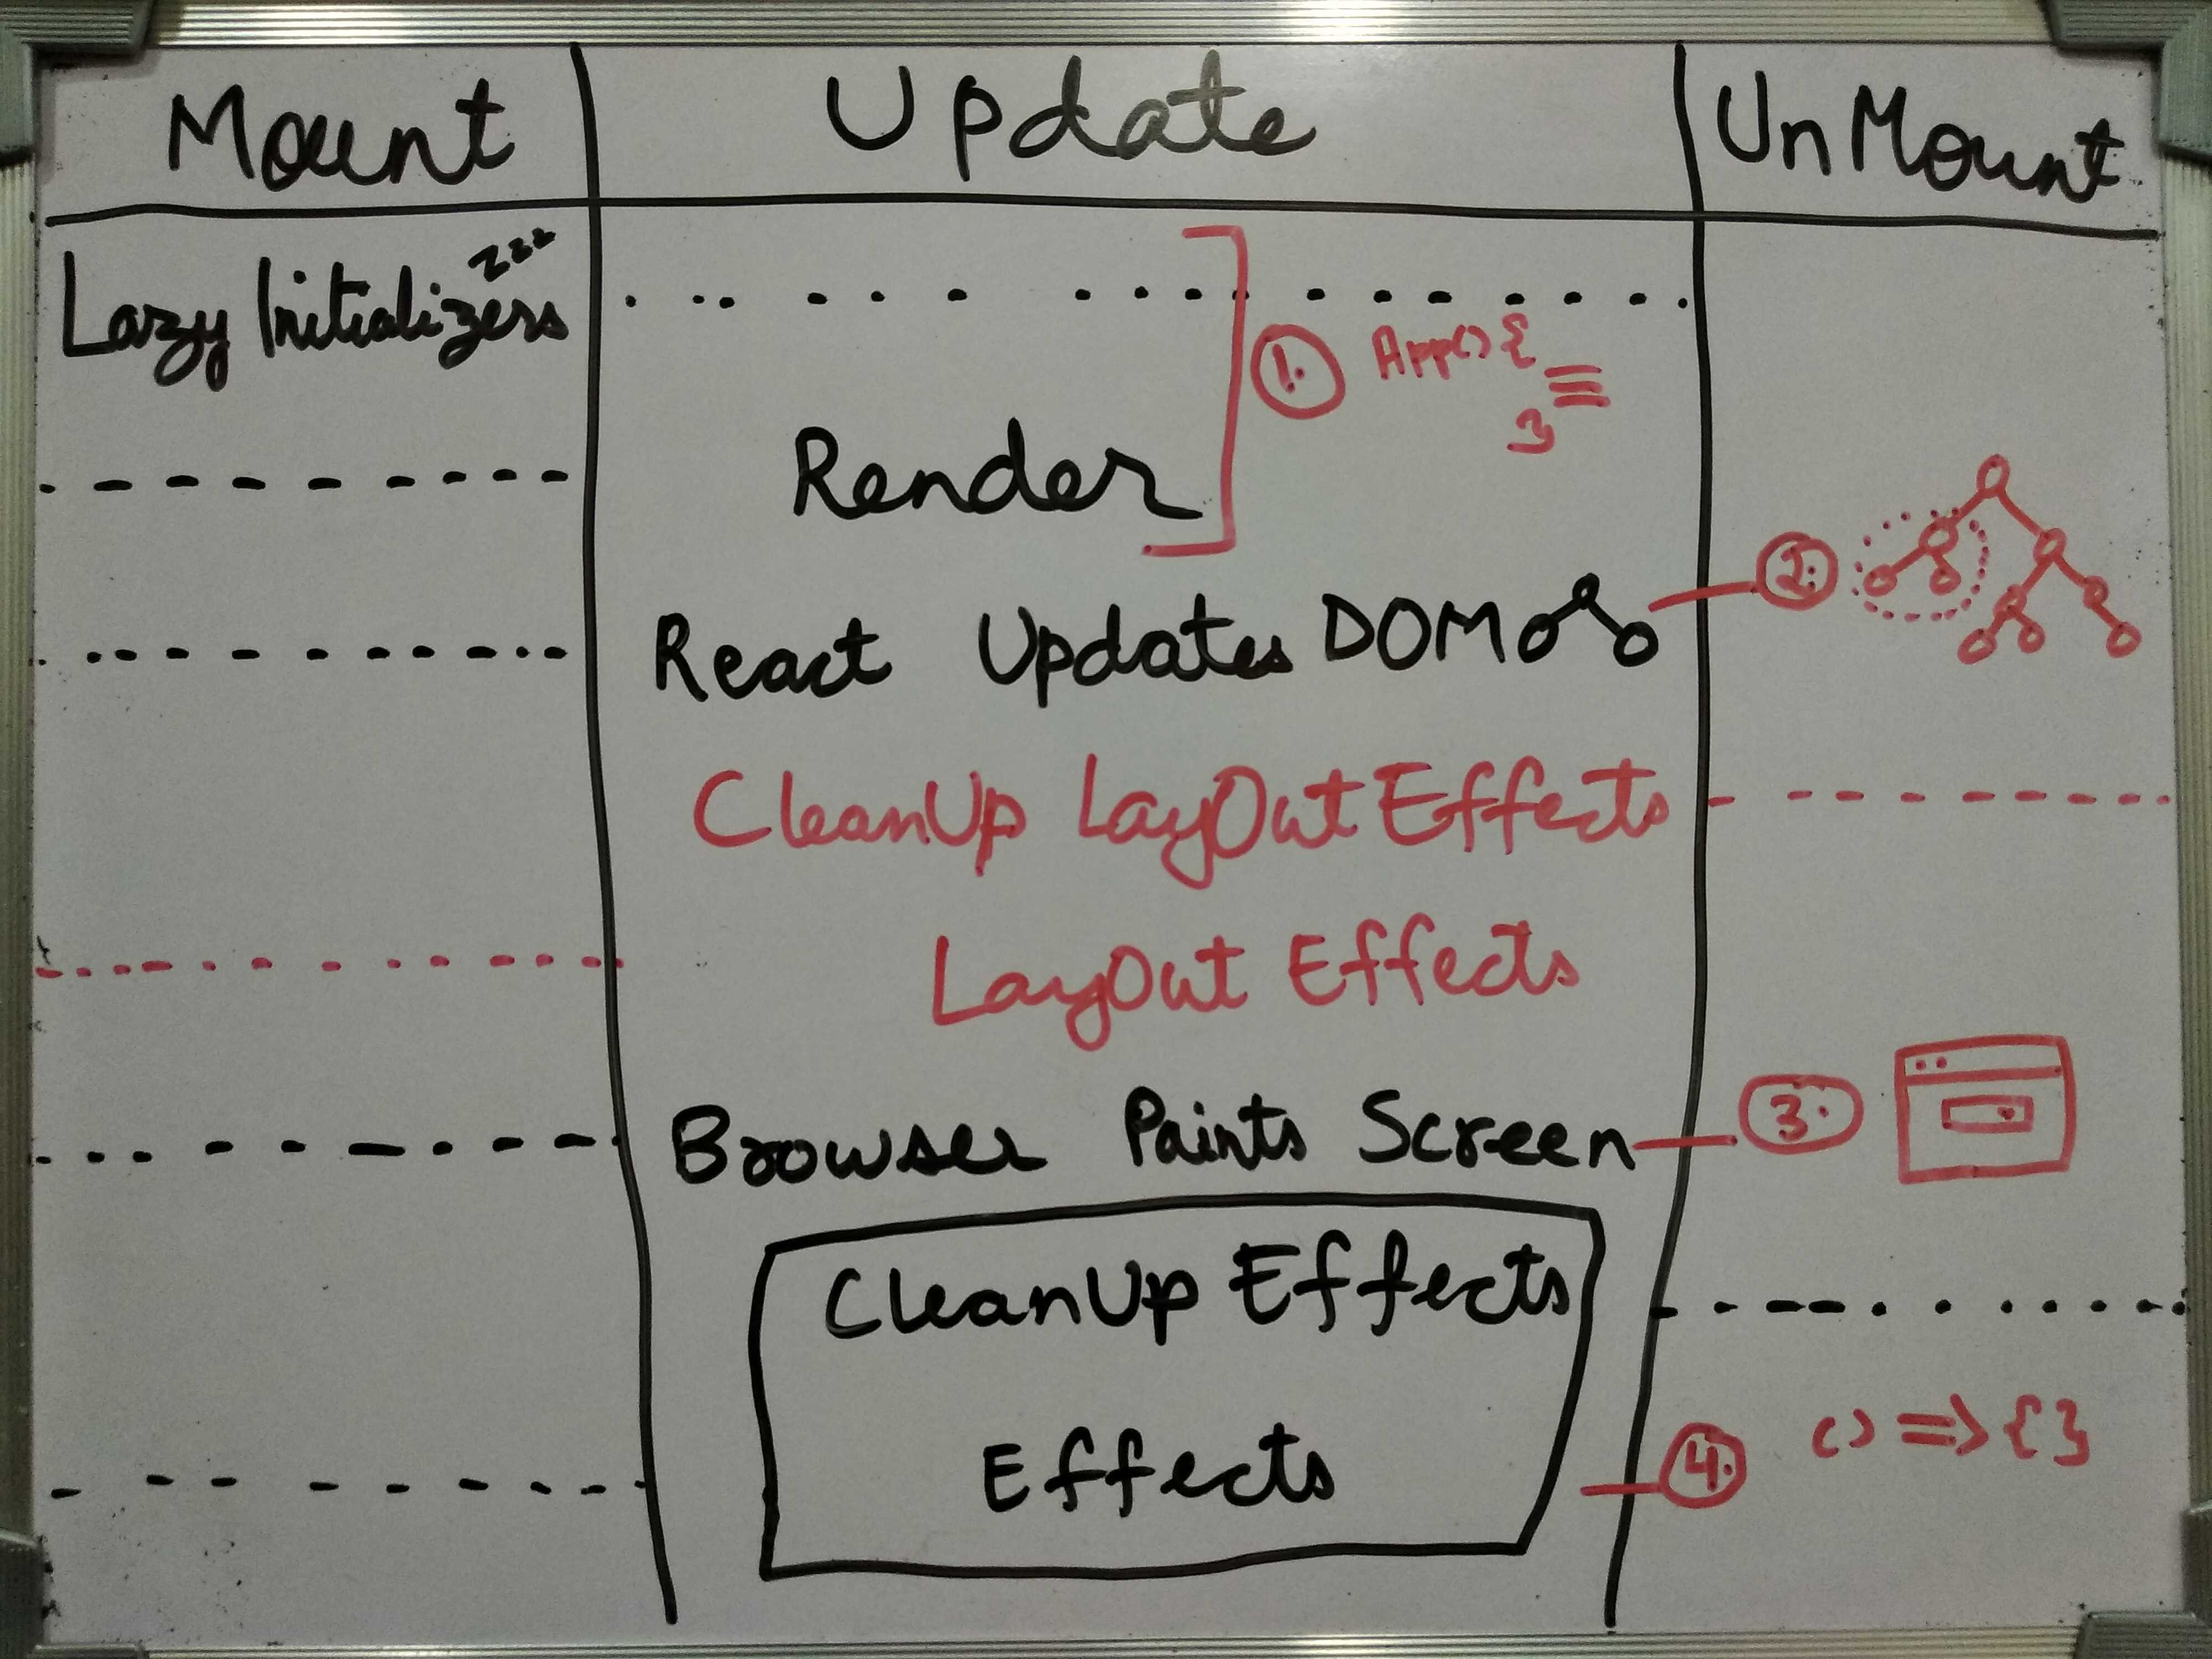 Mount Update UnMount
Lazy Initializers zzz
1. App() {
}
Render
2.
React Updates DOM
CleanUp LayOut Effects
LayOut Effects
Browser Paints Screen 3.
CleanUp Effects
Effects 4. () => { }